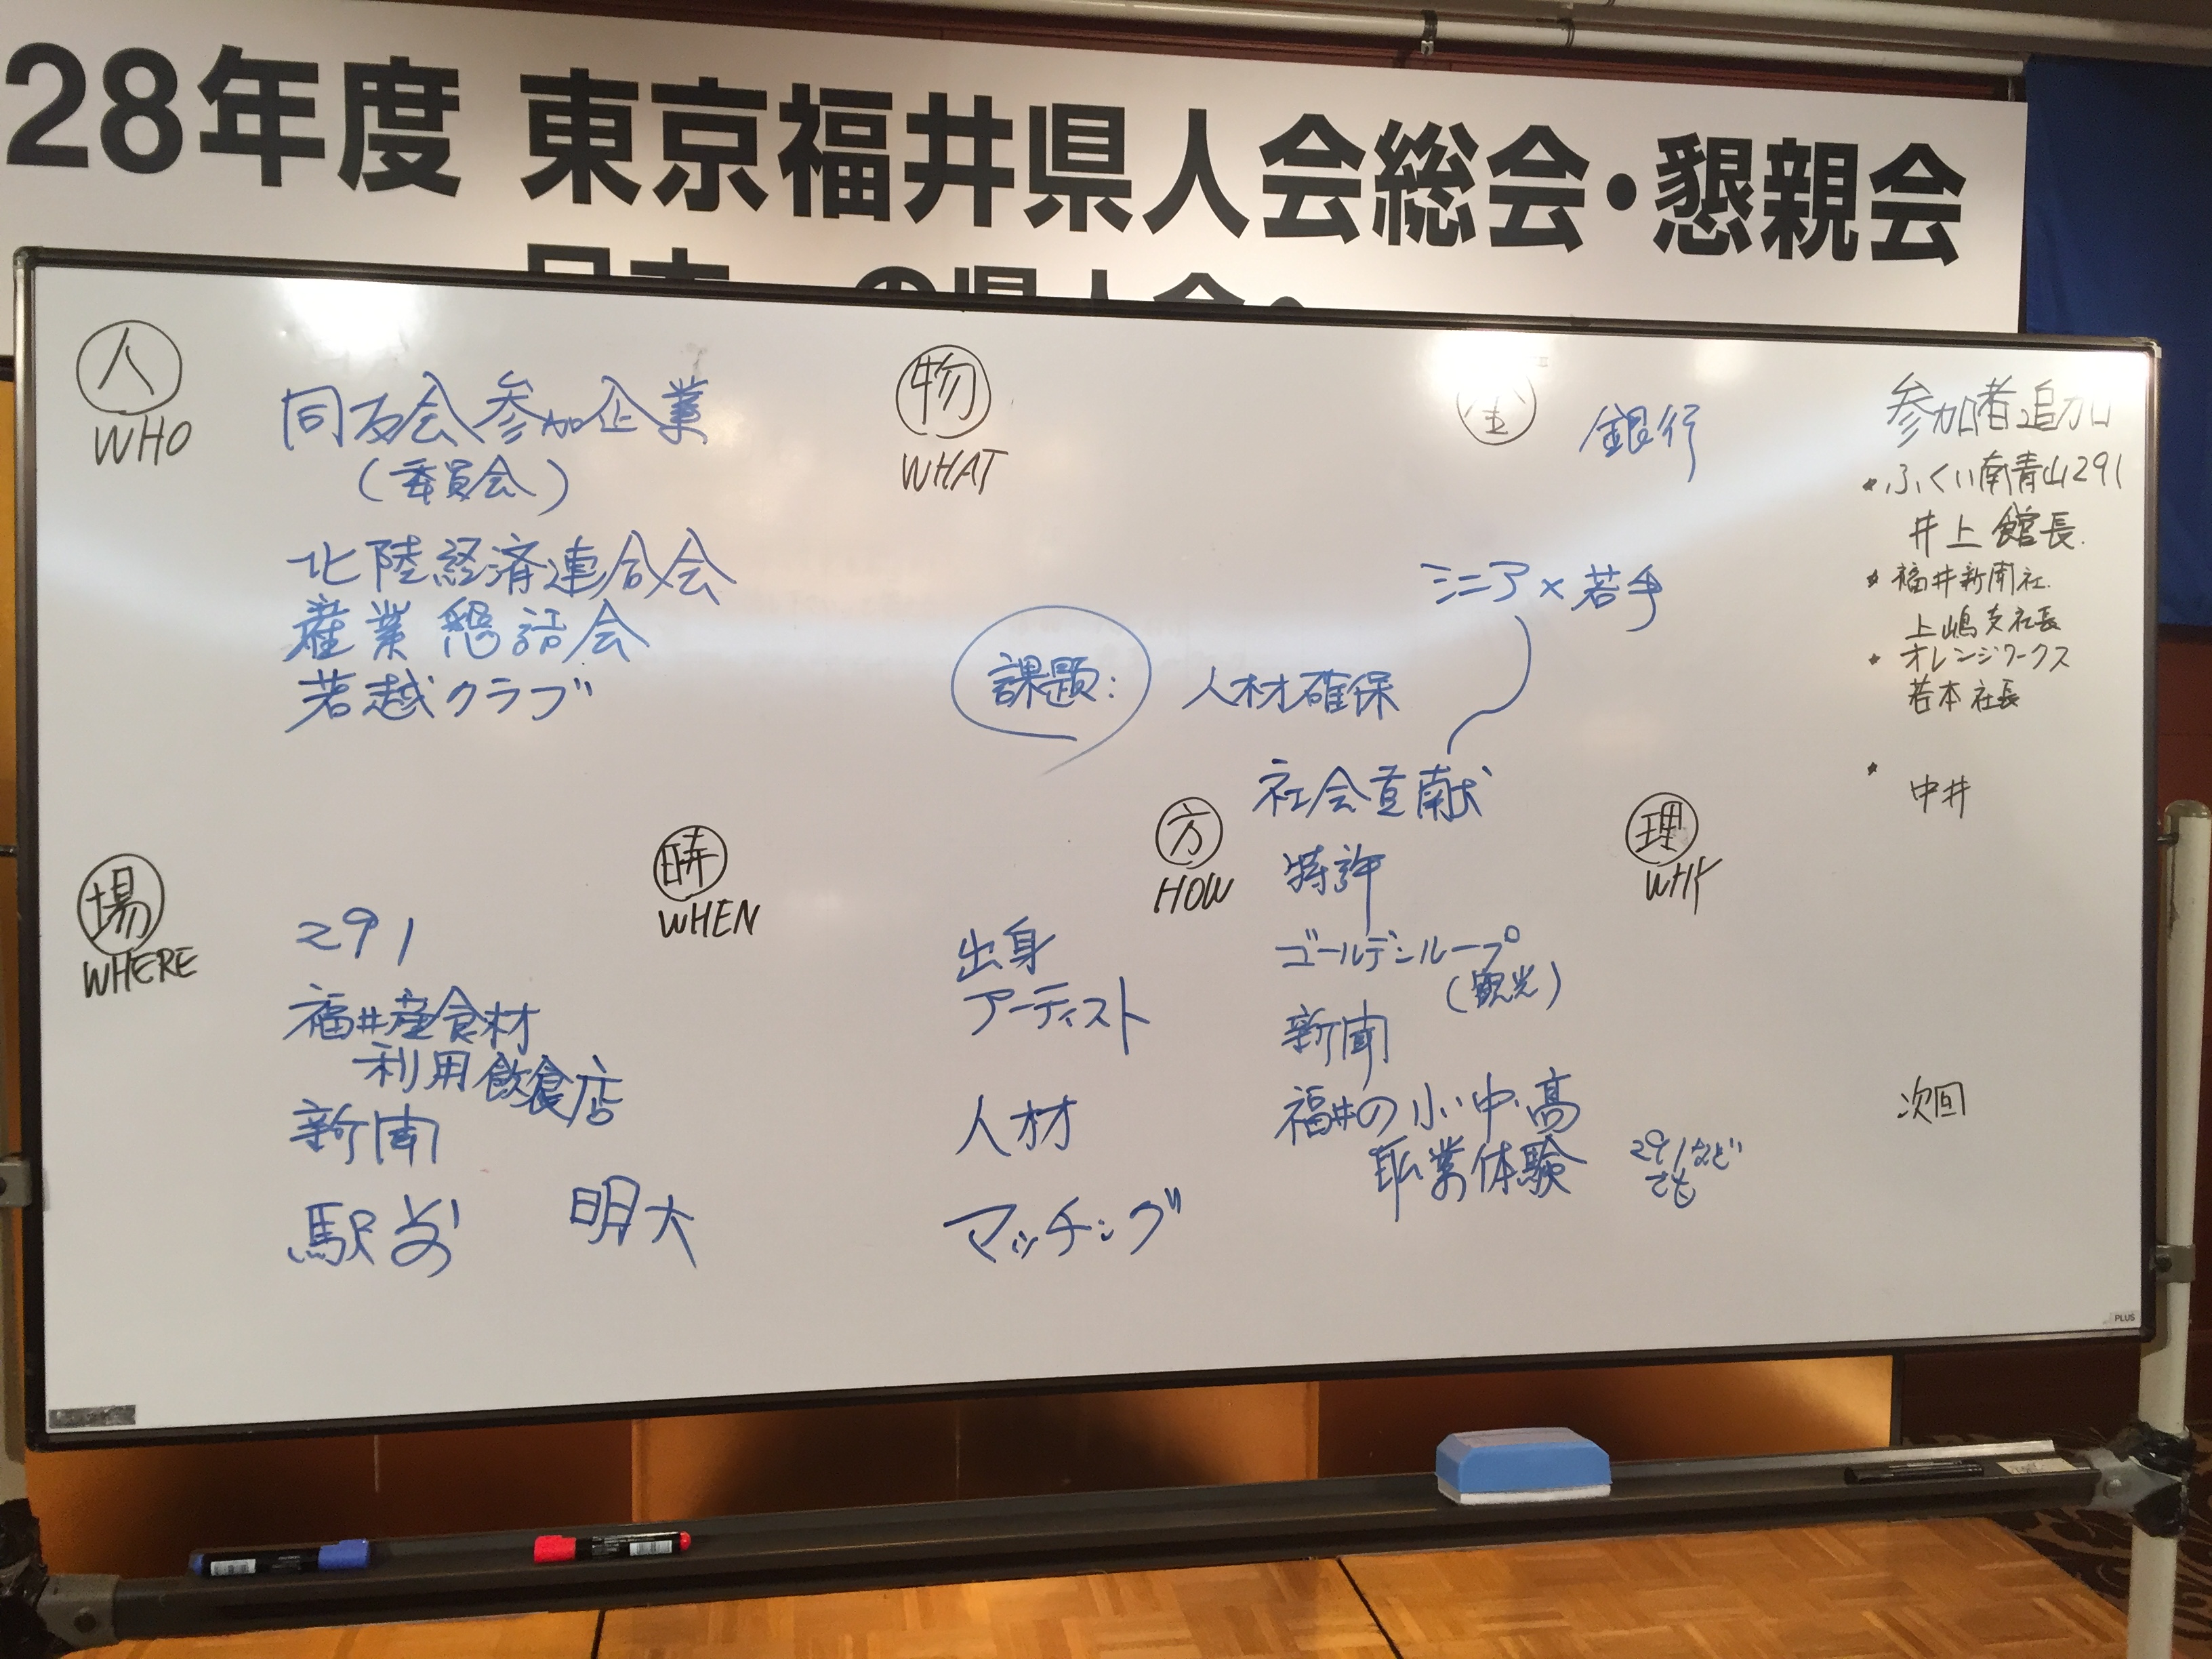 28年度 東京福井県人会総会・懇親会
日本一の県人会へ
人
WHO
同友会参加企業
(委員会)
北陸経済連合会
産業懇話会
若越クラブ
物
WHAT
金
銀行
シニア×若手
課題:
人材確保
社会貢献
参加者追加
・ふくい南青山291
井上 館長
・福井新聞社
上嶋支社長
・オレンジワークス
若本社長
・
中井
場
WHERE
291
福井産食材
利用飲食店
新聞
駅弁
明大
時
WHEN
方
HOW
出身
アーティスト
人材
マッチング
特許
ゴールデンループ
(観光)
新聞
福井の小・中・高
職業体験
291など
でも
理
WHY
次回
PLUS